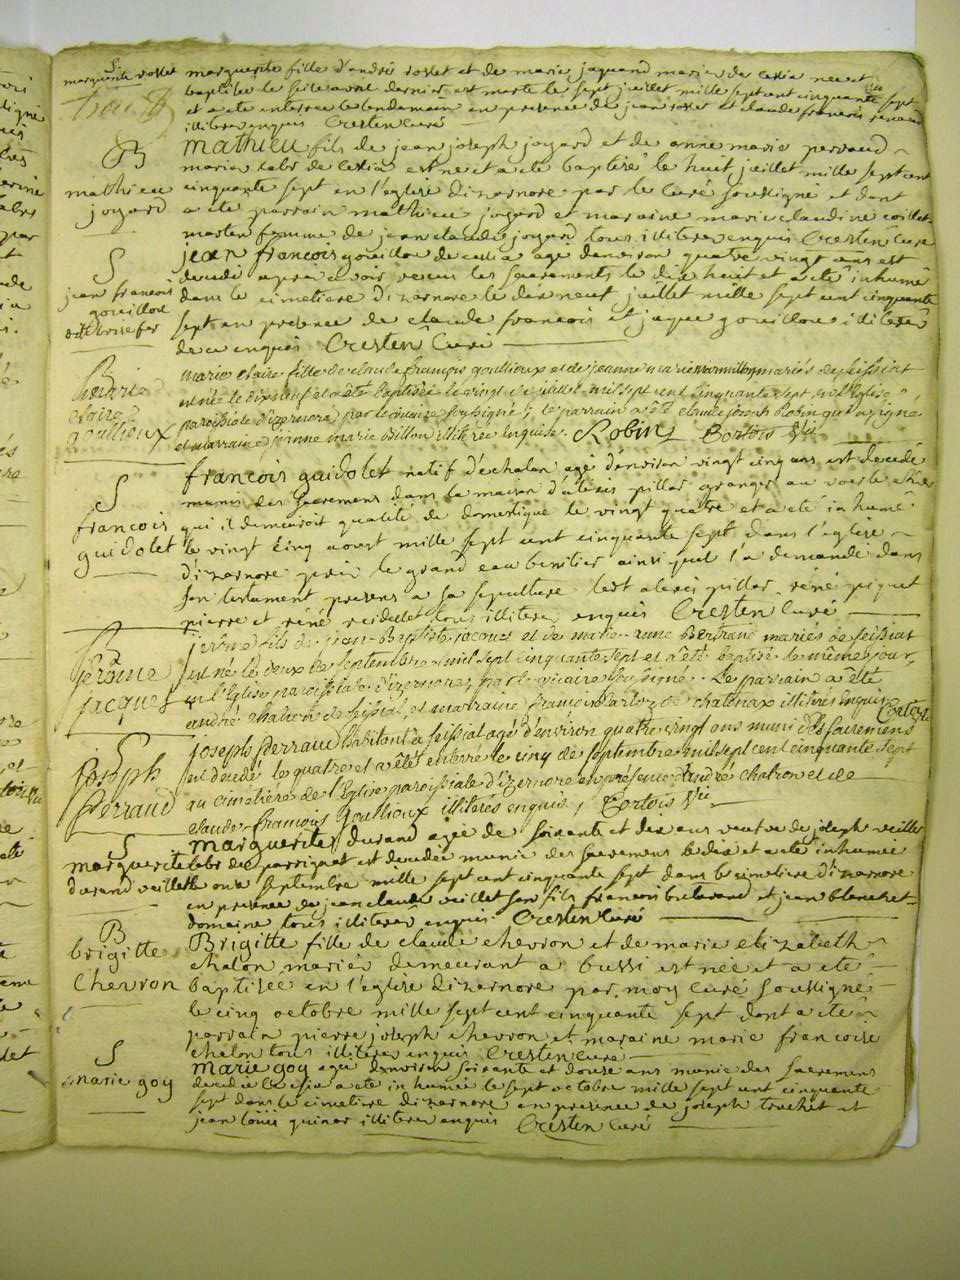 S
marguerite rosset
marguerite fille d'andré rosset et de marie jaquand mariés de cessia née et
baptisée le seise avril dernier est morte le sept juillet mille sept cent cinquante sept
et a eté enterrée le lendemain en presence de jean rosset et claude francois
illiteres enquis Cresten Curé
B
mathieu
jogard
mathieu fils de jean joseph jogard et de anne marie perraud
mariés de cessia est né et a eté baptisé le huit juillet mille sept cent
cinquante sept en l'eglise dizarnore par le Curé Soussigné et dont
a eté parrain mathieu jogard et maraine marie claudine
femme de jean claude jogard tous illiteres enquis Cresten Curé
S
jean francois
gouillou
jean francois gouillou de cessia agé denviron quatre vingt ans est
decedé apres avoir receus les sacrements le dix huit et a eté inhumé
dans le cimetiere dizarnore le dix neuf juillet mille sept cent cinquante
sept en presence de claude francois et jaque gouillou illiteres
de ce enquis Cresten Curé
B
marie
claire
goullioux
marie claire fille de claude françois goullioux et de jeanne marie mariés de seissiat
est née le dix neuf et a été baptisée le vingt de juillet mil sept cent cinquante sept en l'Eglise
paroissiale d'izernore, par le vicaire soussigné, le parrain a été claude joseph Robin qui a signé
et marraine jeanne marie illitérée enquise. Robin Bortois Vic
S
francois
guidolet
francois guidolet natif d'echalon agé denviron vingt cinq ans est decedé
munis des sacremens dans la maison d'alexis pillar granger au
qui il demeuroit qualité de domestique le vingt quatre et a eté inhumé
le vingt cinq aoust mille sept cent cinquante sept dans l'eglise
d'izarnore près le grand eau benitier ainsi quil l'a demandé dans
son testament presens a sa sepulture ledt alexis pillar, réné piquet
pierre et réné tous illiteres enquis Cresten Curé
B
jérôme
jacques
jérôme fils de jean-Baptiste jacques et de marie-anne Bertrand mariés de seissiat
est né le deux de septembre mil sept cinquante sept et a été baptisé le même jour
en l'Eglise paroissiale d'izernore, par le vicaire soussigné. Le parrain a été
andré chatron de seissiat, et marraine de chatonax illitérés enquis Bortois
S
joseph
Perraud
joseph Perraud habitant à seissiat agé d'environ quatre vingt ans muni des sacremens
est décédé le quatre et a été enterré le cinq de septembre mil sept cent cinquante sept
au cimetière de l'Eglise paroissiale d'izernore en présence d'andré chatron et de
claude-françois Goullioux illitérés enquis, Bortois Vic
S
marguerite
durand veillet
marguerite durand agée de soixante et dix ans veufve de joseph veillet
labr de perrignat est decedée munie des sacremens le dix et a eté inhumée
le onze septembre mille sept cent cinquante sept dans le cimetiere d'izarnore
en presence de jean claude veillet son fils francois et jean
domaine tous illiteres enquis Cresten Curé
B
brigitte
Chevron
Brigitte fille de claude chevron et de marie elizabeth
chalon mariés demeurant a bussi est née et a eté
baptisée en l'eglise dizarnore par moy Curé Soussigné
le cinq octobre mille sept cent cinquante sept dont a eté
parrain pierre joseph chevron et maraine marie francoise
chalon tous illiteres enquis Cresten Curé
S
marie goy
marie goy agée denviron soixante et douse ans munie des sacremens
decedée le six a eté inhumée le sept octobre mille sept cent cinquante
sept dans le cimetiere dizarnore en presence de joseph trochet et
jean louis quinar illiteres enquis Cresten Curé